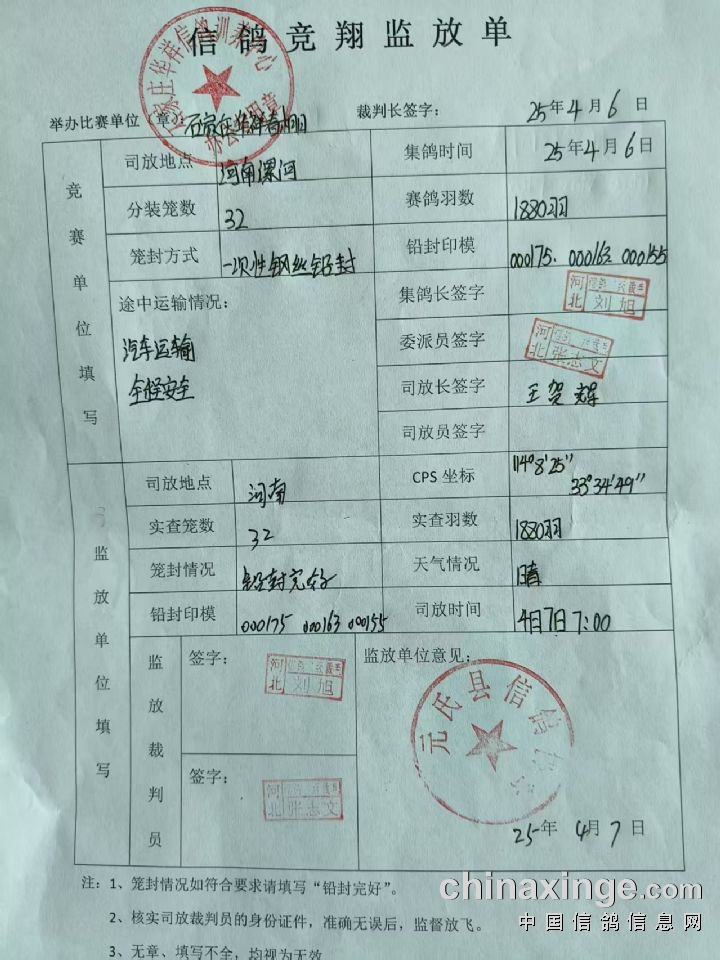 信鸽竞翔监放单
举办比赛单位（章） 石家庄华祥 裁判长签字： 25年4月6日
竞赛单位填写
司放地点 河南漯河 集鸽时间 25年4月6日
分装笼数 32 赛鸽羽数 1880羽
笼封方式 一次性钢丝铅封 铅封印模 000175. 000163 000155
途中运输情况： 集鸽长签字 河北 刘旭
汽车运输 委派员签字 河北 张志文
全程安全 司放长签字 王贺辉
司放员签字
监放单位填写
司放地点 河南 CPS 坐标 114°8'25" 33°34'49"
实查笼数 32 实查羽数 1880羽
笼封情况 铅封完好 天气情况 晴
铅封印模 000175 000163 000155 司放时间 4月7日 7:00
监放裁判员
签字： 河北 刘旭 监放单位意见：
元氏县信鸽
签字： 河北 张志文
25年 4月7日
注：1、笼封情况如符合要求请填写“铅封完好”。
2、核实司放裁判员的身份证件，准确无误后，监督放飞。
3、无章、填写不全，均视为无效
chinaxinge.com
中国信鸽信息网